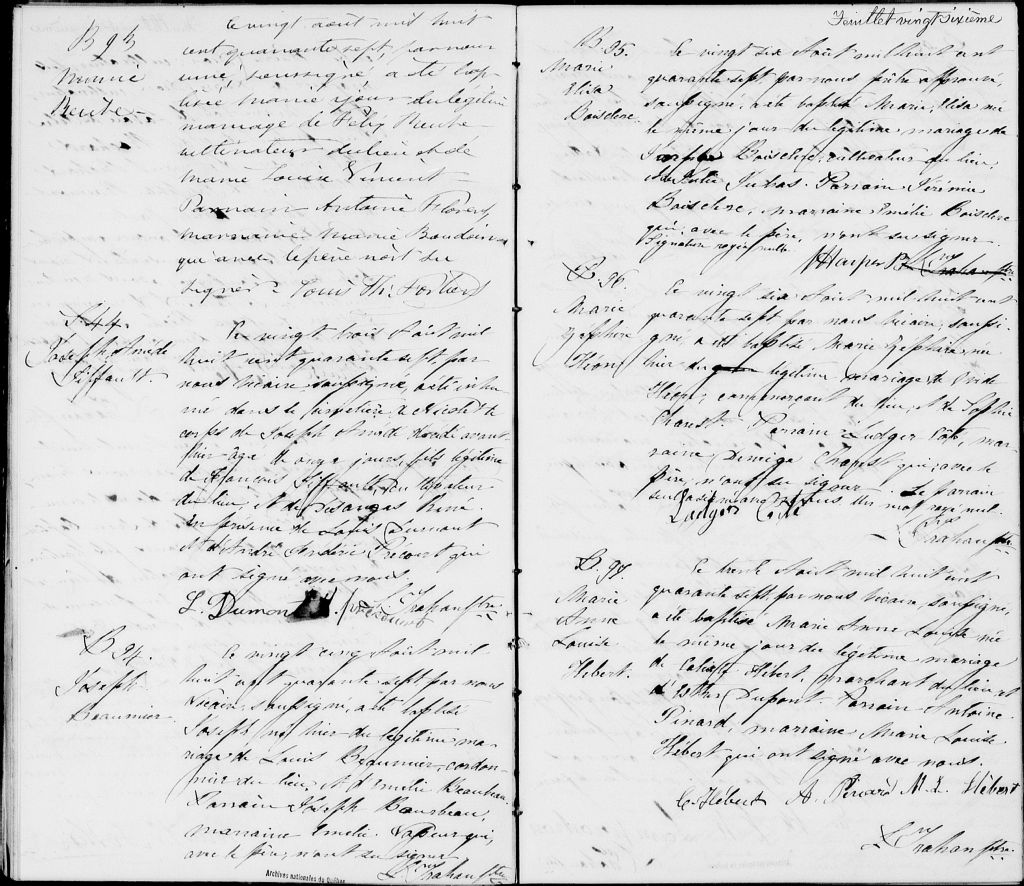 B 93
Marie
Le vingt août mil huit
cent quarante sept, par nous
curé, soussigné, a été bap-
tisé Marie 9 jours du légitime
mariage de Félix
cultivateur du lieu et de
Marie Louise Vincent
Parrain Antoine
marraine Marie Baudoin
qui avec le père n'ont su
signer. Louis Th. Fortier
S. 44.
Joseph Amédé
Siffault.
Le vingt trois Août mil
huit cent quarante sept, par
nous vicaire soussigné, a été inhu-
mé dans le cimetière de Nicolet le
corps de Joseph Amédé décédé avant-
hier agé de onze jours, fils légitime
de François Siffault,
du lieu, et de
En présence de Louis Dumont
et de André Précourt qui
ont signé avec nous.
L. Dumont Précourt Trahan ptre.
B 94.
Joseph
Beaumier
Le vingt cinq Août mil
huit cent quarante sept par nous
Vicaire, soussigné, a été baptisé
Joseph né hier du légitime ma-
riage de Louis Beaumier, cordon-
nier du lieu, et Emélie
Parrain Joseph
marraine Emélie qui,
avec le père, n'ont su signer
Trahan ptre
Archives nationales du Québec
Feuillet vingt sixième
B. 95.
Marie
Elisa
Boisclere
Le vingt six Août mil huit cent
quarante sept par nous prêtre approuvé,
soussigné, a été baptisé Marie Elisa née
le même jour du légitime mariage de
Boisclere, cultivateur du lieu,
et de Julie Jutras. Parrain Jérémie
Boisclere, marraine Emélie Boisclere
qui, avec le père, n'ont su signer.
Signature rayée nulle
Harper Ptr Trahan ptre
B. 96.
Marie
Zéphire
Héon
Le vingt six Août mil huit cent
quarante sept par nous vicaire, soussi-
gné, a été baptisé Marie Zéphire, née
hier du légitime mariage de
Héon, commerçant du lieu, et de Sophie
Charest. Parrain Ludger Côté, mar-
raine Demige Charest qui, avec le
père, n'ont su signer. Le parrain
seul a signé avec nous. Un mot rayé nul.
Ludger Côté
Trahan ptre
B. 97.
Marie
Anne
Louise
Hébert.
Le trente Août mil huit cent
quarante sept, par nous vicaire, soussigné,
a été baptisé Marie Anne Louise née
le même jour du légitime mariage
de Calixte Hébert, marchand du lieu, et
d'Esther Dupont. Parrain Antoine
Pinard, marraine Marie Louise
Hébert qui ont signé avec nous.
C. Hébert A. Pinard M. L. Hébert
Trahan ptre.